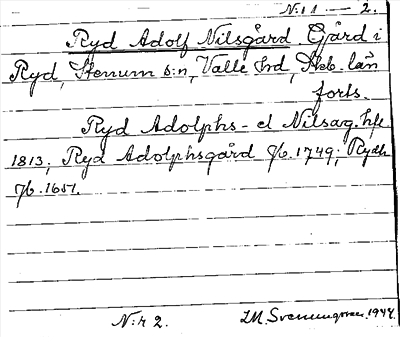 N:1 1 — 2.
Ryd Adolf Nilsgård. Gård i
Ryd, Stenum s:n, Valle hrd, Skb. län
forts.
Ryd Adolphs- el Nilsag. hfl
1813; Ryd Adolphsgård Jb. 1749; Rydh
Jb. 1651.
N:r 2. I.M. Svennungsson. 1944.